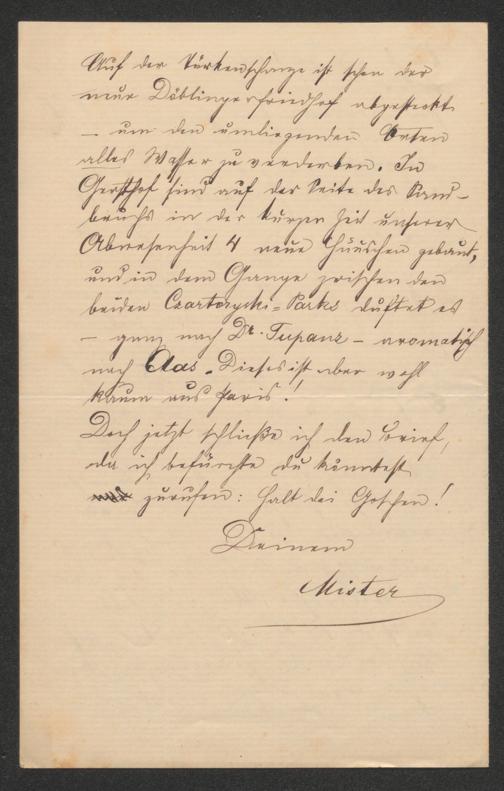 Auf der Türkenschanze ist schon der
neue Döblingerfriedhof abgesteckt
– um den umliegenden Orten
alles Wasser zu verderben. In
Gersthof sind auf der Seite des Sand-
bruchs in der kurzen Zeit unserer
Abwesenheit 4 neue Häuschen gebaut,
und in dem Gange zwischen den
beiden Czartoryski-Parks duftet es
– ganz nach Dr. Tupanz – aromatisch
nach Aas. Dieses ist aber wohl
kaum aus Paris!
Doch jetzt schließe ich den Brief,
da ich befürchte du könntest
zurufen: Halt dei Goschen!
Deinem
Mister